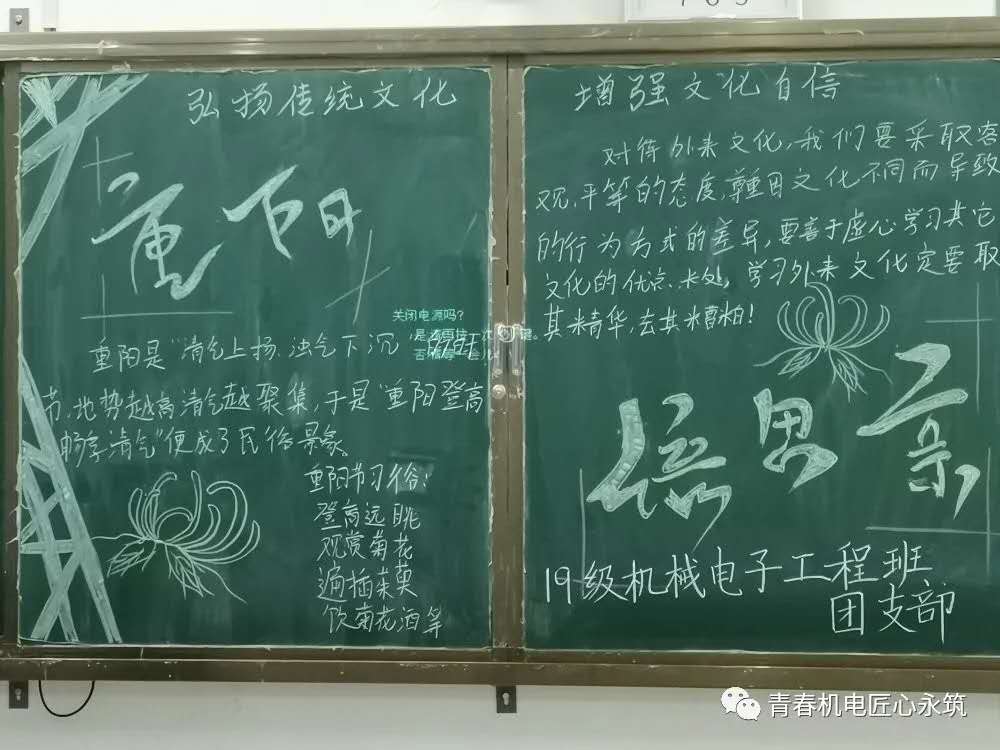 弘扬传统文化
重阳
关闭电源吗?
是:请再按一次 键。
重阳是"清气上扬、浊气下沉"的时
节,地势越高清气越聚集,于是"重阳登高
畅享清气"便成了民俗景象
重阳节习俗:
登高远眺
观赏菊花
遍插茱萸
饮菊花酒等
增强文化自信
对待外来文化,我们要采取客
观、平等的态度,尊重因文化不同而导致
的行为方式的差异,要善于虚心学习其它
文化的优点、长处,学习外来文化定要取
其精华,去其糟粕!
倍思亲
19级机械电子工程班
团支部
青春机电匠心永筑